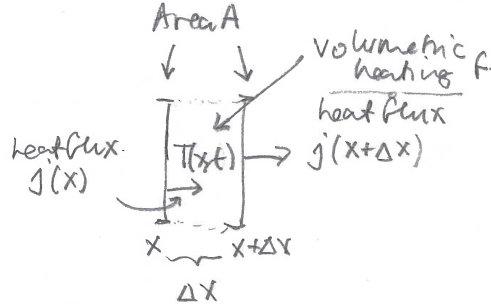 Area A
volumetric
heating f
heat flux
j(x+Δx)
heat flux.
j(x)
T(x,t)
x x+Δx
Δx